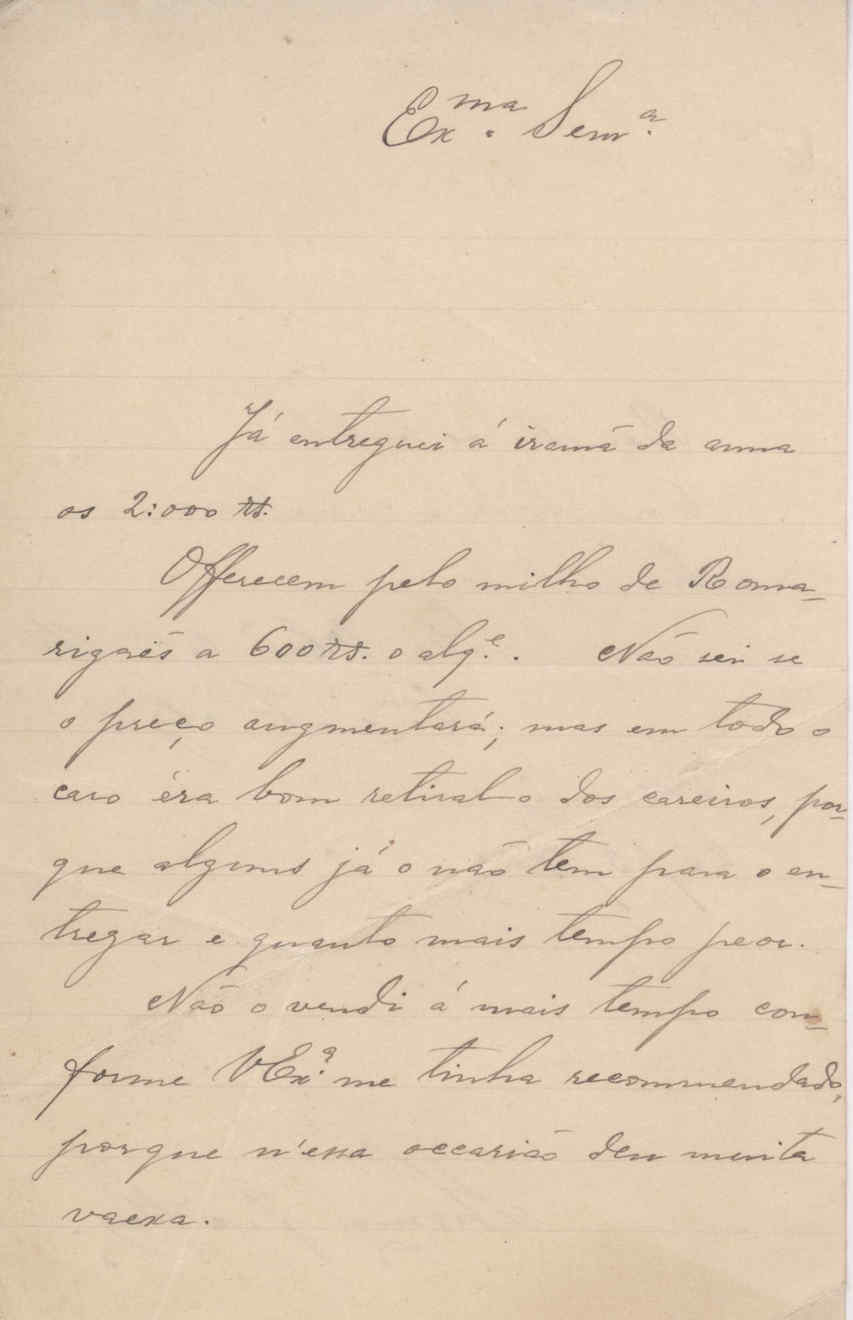 Ex.ma Senr.a
Já entreguei á iramã da anna
os 2:000 rs.
Offerecem pelo milho de Roma-
rigaẽs a 600 rs. o alq.e. Não sei se
o preço augmentará; mas em todo o
caso éra bom retiral-o dos caseiros, por-
que alguns já o não tem para o en-
tregar e quanto mais tempo peor.
Não o vendi á mais tempo con-
forme VEx.a me tinha recommendado,
porque n'essa occasião deu muita
vaexa.